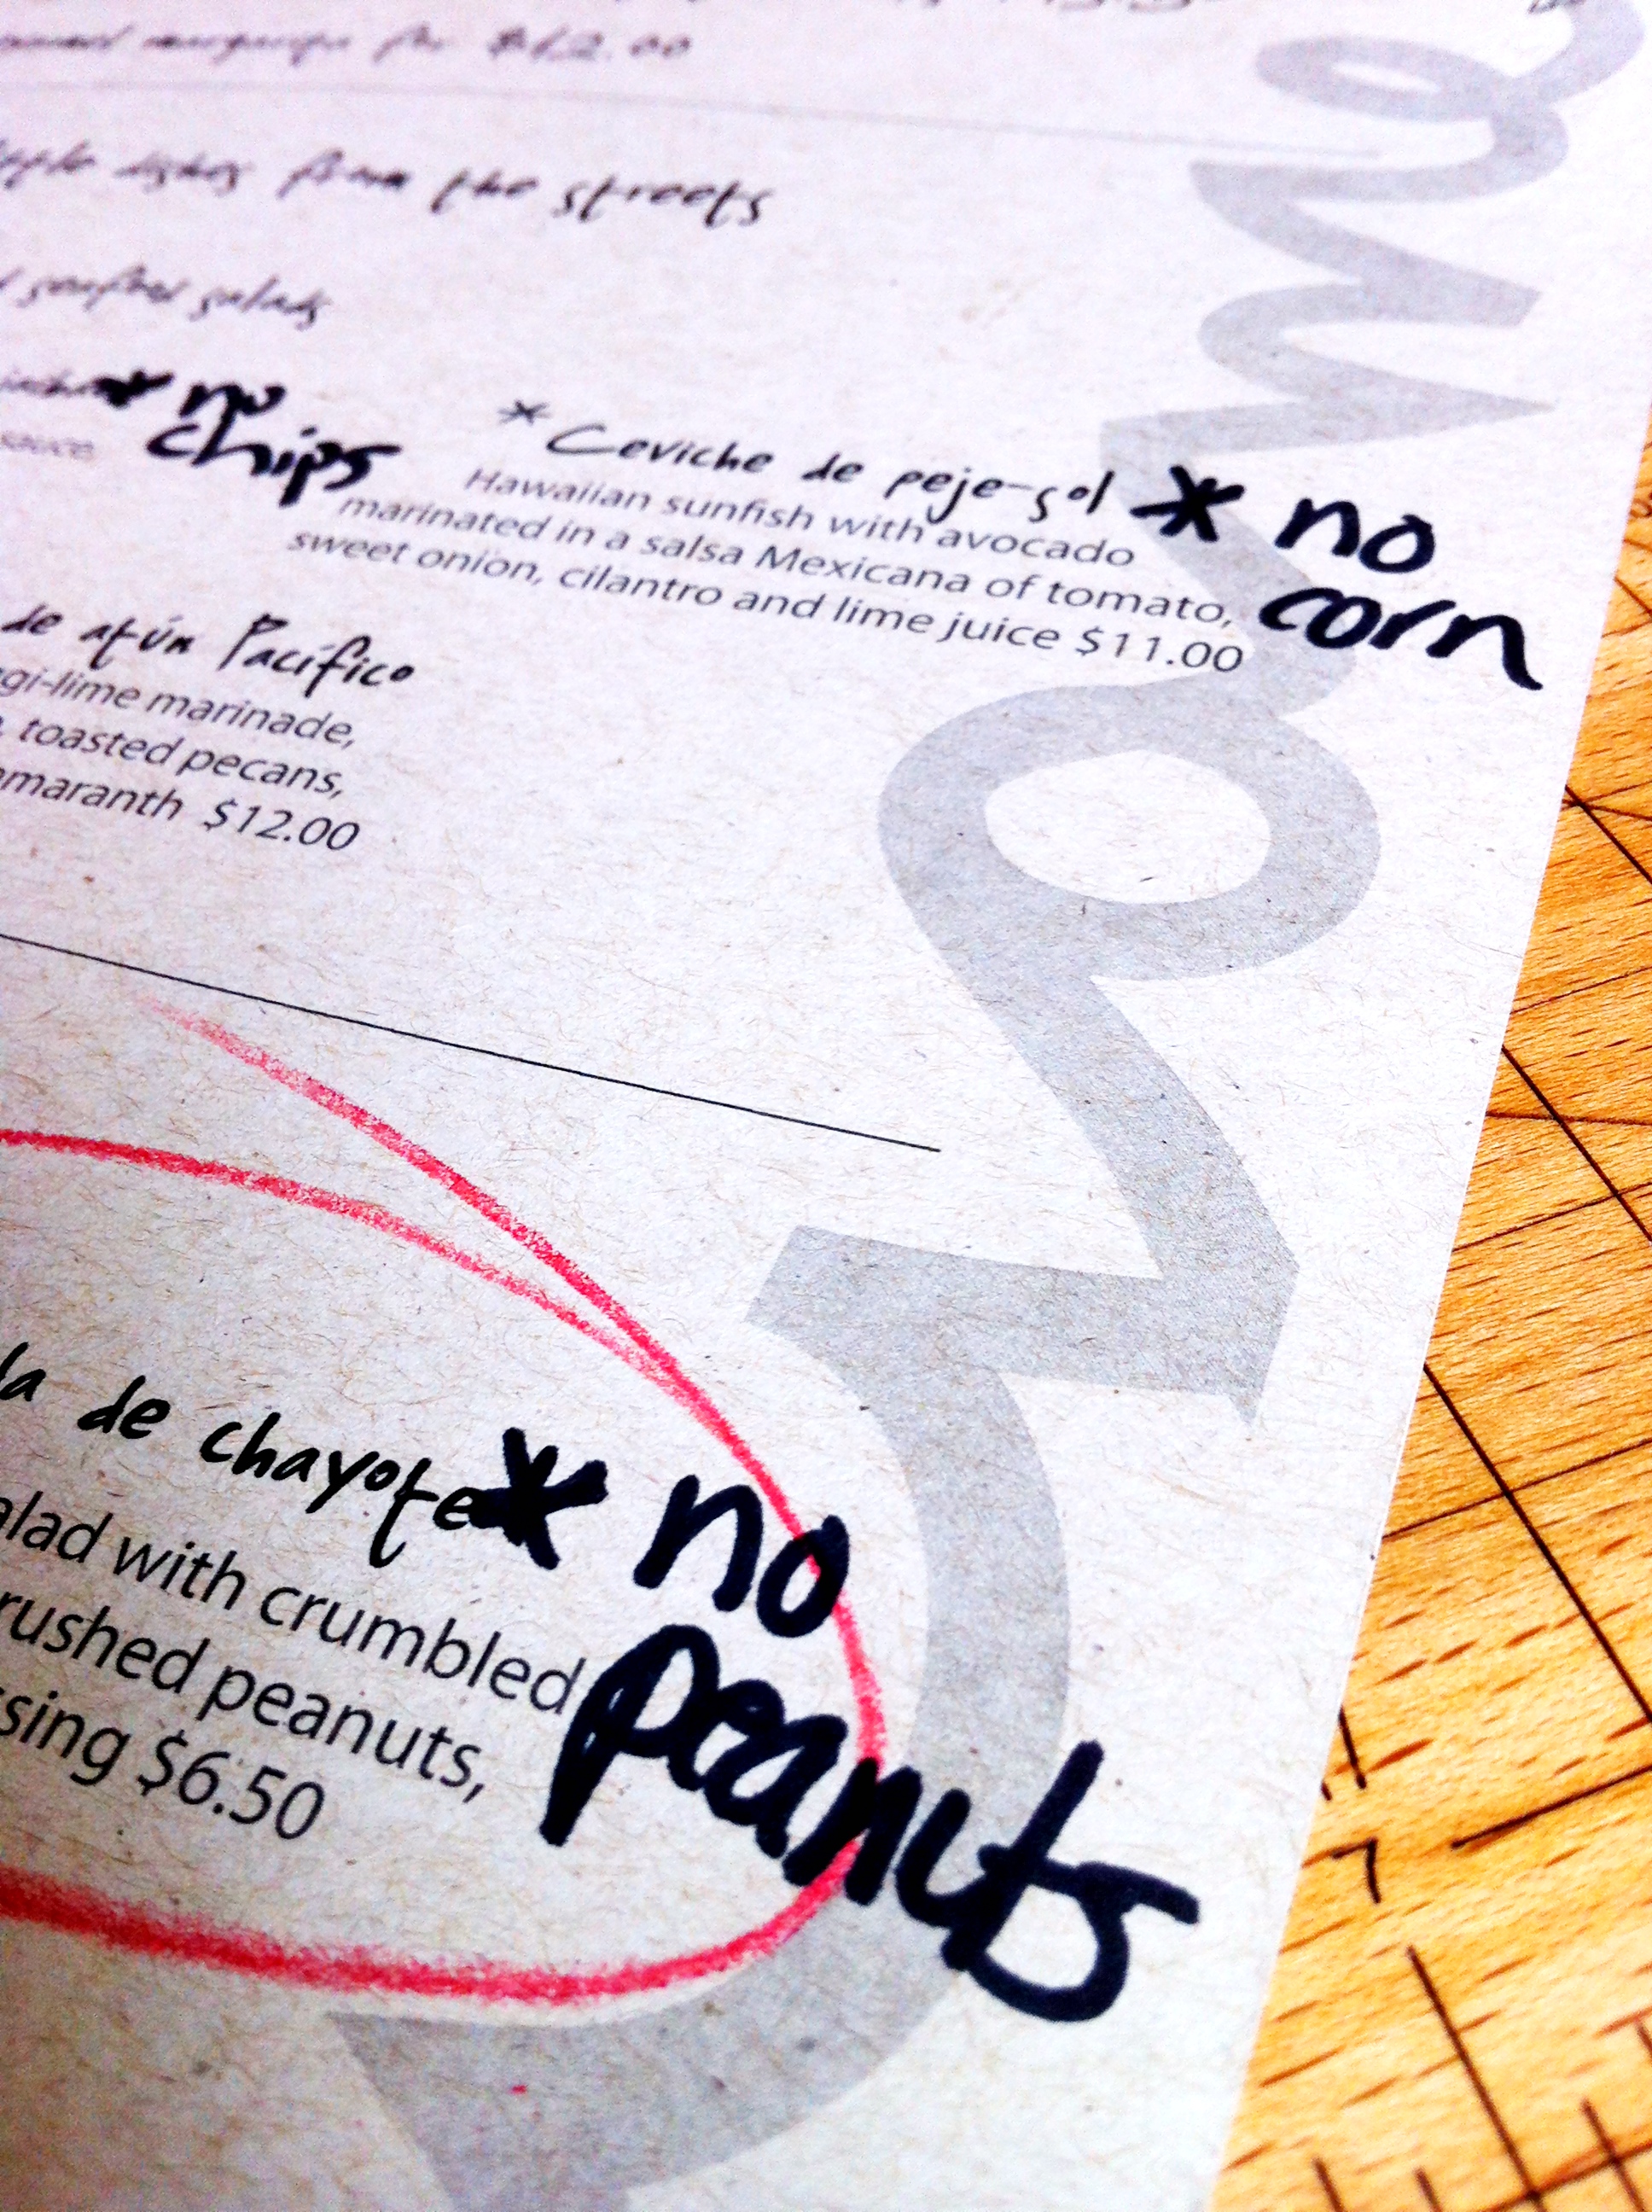 for $12.00
dishes from the streets
salads
* no
chips
sauce
* Ceviche de peje-sol * no
corn
Hawaiian sunfish with avocado
marinated in a salsa Mexicana of tomato,
sweet onion, cilantro and lime juice $11.00
de atún Pacífico
gi-lime marinade,
toasted pecans,
maranth $12.00
la de chayote * no
peanuts
alad with crumbled
rushed peanuts,
ssing $6.50